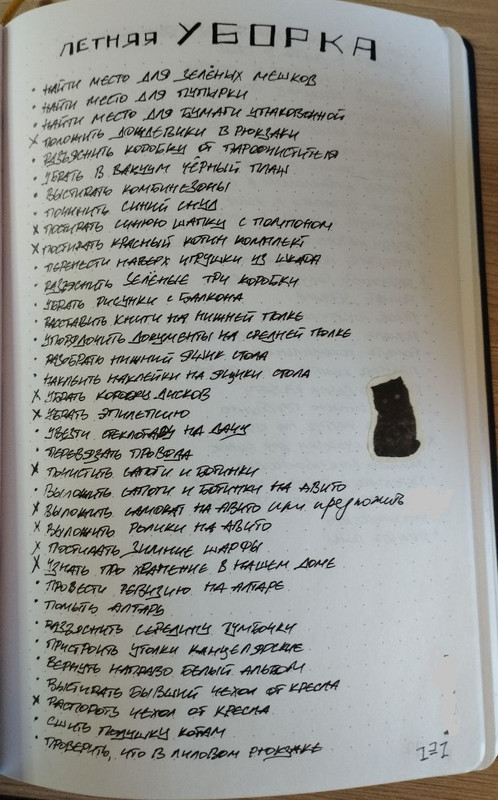 ЛЕТНЯЯ УБОРКА
· НАЙТИ МЕСТО ДЛЯ ЗЕЛЁНЫХ МЕШКОВ
· НАЙТИ МЕСТО ДЛЯ ПУПЫРКИ
· НАЙТИ МЕСТО ДЛЯ БУМАГИ УПАКОВОЧНОЙ
x ПОЛОЖИТЬ ДОЖДЕВИКИ В РЮКЗАКИ
· РАЗЪЯСНИТЬ КОРОБКУ ОТ ПАРООЧИСТИТЕЛЯ
· УБРАТЬ В ВАКУУМ ЧЁРНЫЙ ПЛАЩ
· ВЫСТИРАТЬ КОМБИНЕЗОНЫ
· ПОЧИНИТЬ СИНИЙ СНУД
x ПОСТИРАТЬ СИНЮЮ ШАПКУ С ПОМПОНОМ
x ПОСТИРАТЬ КРАСНЫЙ КОТИН КОМПЛЕКТ
· ПЕРЕНЕСТИ НАВЕРХ ИГРУШКИ ИЗ ШКАФА
· РАЗЪЯСНИТЬ ЗЕЛЁНЫЕ ТРИ КОРОБКИ
· УБРАТЬ РИСУНКИ С БАЛКОНА
· РАССТАВИТЬ КНИГИ НА НИЖНЕЙ ПОЛКЕ
· УПОРЯДОЧИТЬ ДОКУМЕНТЫ НА СРЕДНЕЙ ПОЛКЕ
· РАЗОБРАТЬ НИЖНИЙ ЯЩИК СТОЛА
· НАКЛЕИТЬ НАКЛЕЙКИ НА ЯЩИКИ СТОЛА
x УБРАТЬ КОРОБКУ ДИСКОВ
x УБРАТЬ ЭПИЛЕПСИЮ
· УВЕЗТИ СТЕКЛОТАРУ НА ДАЧУ
· ПЕРЕВЯЗАТЬ ПРОВОДА
x ПОЧИСТИТЬ САПОГИ И БОТИНКИ
· ВЫЛОЖИТЬ САПОГИ И БОТИНКИ НА АВИТО
x ВЫЛОЖИТЬ САМОКАТ НА АВИТО ИЛИ предложить
x ВЫЛОЖИТЬ РОЛИКИ НА АВИТО
x ПОСТИРАТЬ ЗИМНИЕ ШАРФЫ
x УЗНАТЬ ПРО ХРАНЕНИЕ В НАШЕМ ДОМЕ
· ПРОВЕСТИ РЕВИЗИЮ НА АЛТАРЕ
· ПОМЫТЬ АЛТАРЬ
· РАЗЪЯСНИТЬ СЕРЕДИНУ ТУМБОЧКИ
· ПРИСТРОИТЬ УГОЛКИ КАНЦЕЛЯРСКИЕ
· ВЕРНУТЬ НАПРАВО БЕЛЫЙ АЛЬБОМ
· ВЫСТИРАТЬ БЫВШИЙ ЧЕХОЛ ОТ КРЕСЛА
x РАСПОРОТЬ ЧЕХОЛ ОТ КРЕСЛА
· СШИТЬ ПОДУШКУ КОТАМ
· ПРОВЕРИТЬ, ЧТО В ЛИЛОВОМ РЮКЗАКЕ
171